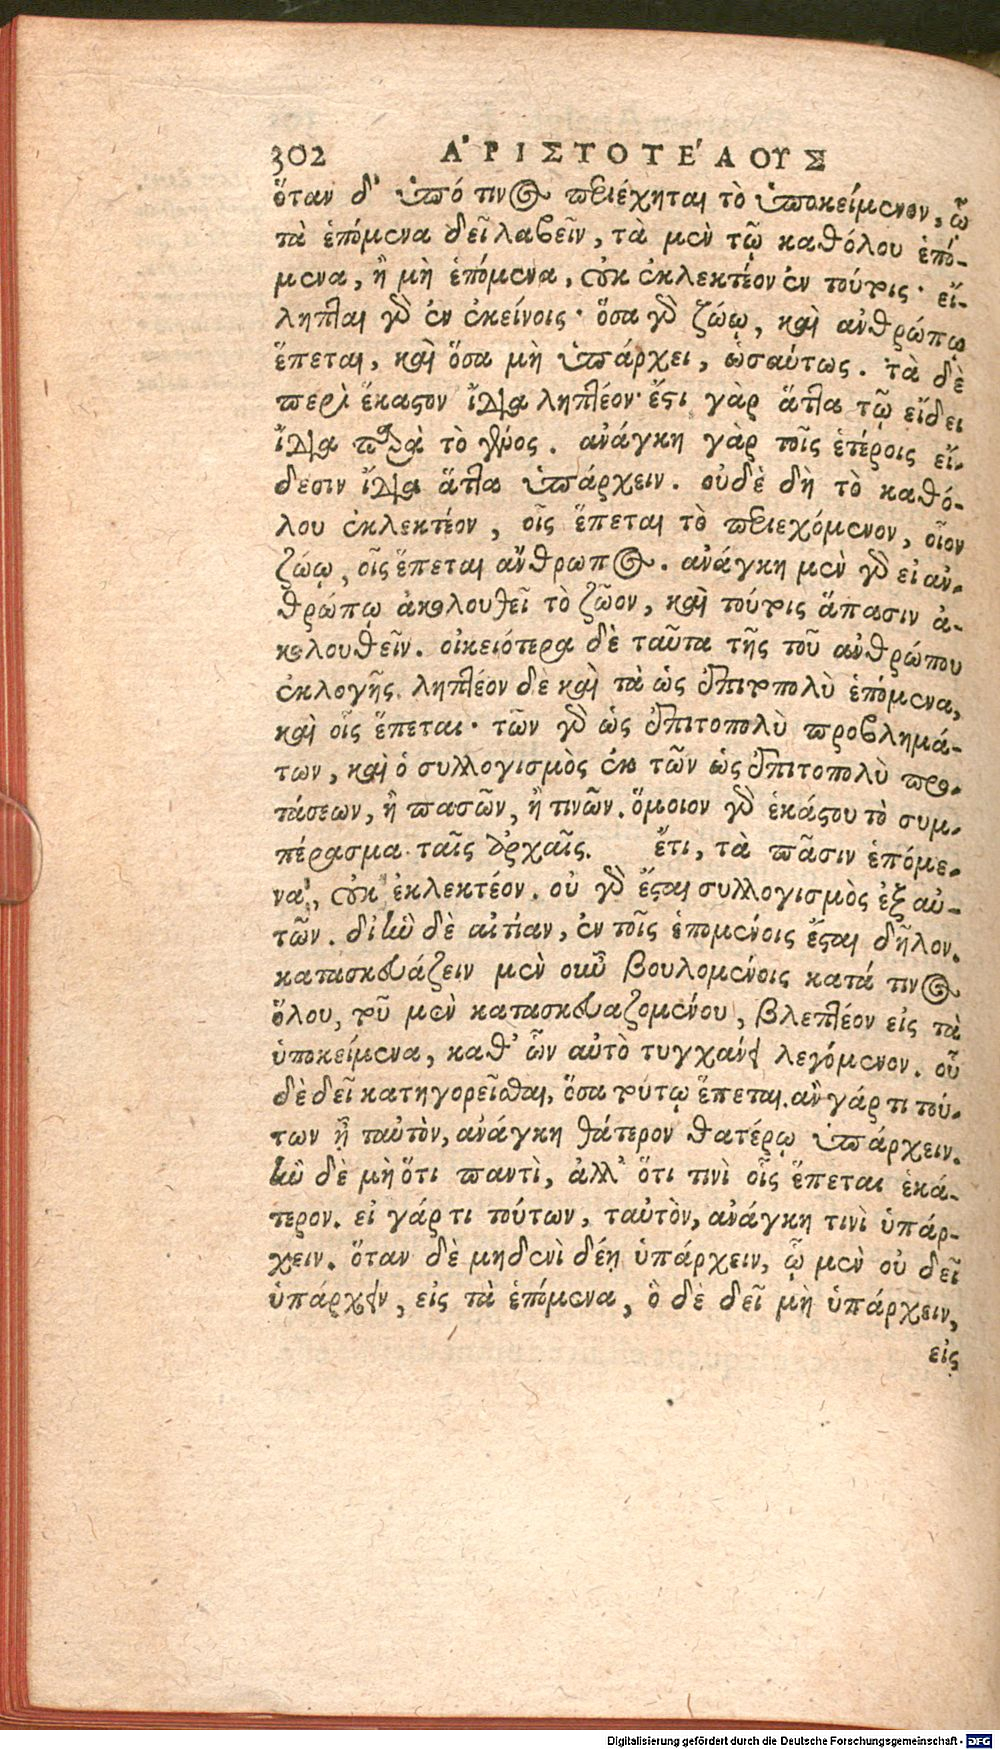 302 Ἀ ΡΙΣΤΟΤΈΛΟΥΣ
ὅταν δ' ὑπό τινος περιέχηται τὸ ὑποκείμενον, ᾧ
τὰ ἑπόμενα δεῖ λαβεῖν, τὰ μὲν τῷ καθόλου ἑπό-
μενα, ἢ μὴ ἑπόμενα, οὐκ ἐκλεκτέον ἐν τούτοις· εἴ-
ληπται γὰρ ἐν ἐκείνοις· ὅσα γὰρ ζώῳ, καὶ ἀνθρώπῳ
ἕπεται, καὶ ὅσα μὴ ὑπάρχει, ὡσαύτως. τὰ δὲ
περὶ ἕκαστον ἴδια ληπτέον· ἔστι γὰρ ἅττα τῷ εἴδει
ἴδια παρὰ τὸ γένος. ἀνάγκη γὰρ τοῖς ἑτέροις εἴ-
δεσιν ἴδια ἅττα ὑπάρχειν. οὐδὲ δὴ τὸ καθό-
λου ἐκλεκτέον, οἷς ἕπεται τὸ περιεχόμενον, οἷον
ζώῳ, οἷς ἕπεται ἄνθρωπος. ἀνάγκη μὲν γὰρ εἰ ἀν-
θρώπῳ ἀκολουθεῖ τὸ ζῶον, καὶ τούτοις ἅπασιν ἀ-
κολουθεῖν. οἰκειότερα δὲ ταῦτα τῆς τοῦ ἀνθρώπου
ἐκλογῆς. ληπτέον δὲ καὶ τὰ ὡς ἐπιτοπολὺ ἑπόμενα,
καὶ οἷς ἕπεται· τῶν γὰρ ὡς ἐπιτοπολὺ προβλημά-
των, καὶ ὁ συλλογισμὸς ἐκ τῶν ὡς ἐπιτοπολὺ προ-
τάσεων, ἢ πασῶν, ἢ τινῶν. ὅμοιον γὰρ ἑκάστου τὸ συμ-
πέρασμα ταῖς ἀρχαῖς. ἔτι, τὰ πᾶσιν ἑπόμε-
να, οὐκ ἐκλεκτέον. οὐ γὰρ ἔσται συλλογισμὸς ἐξ αὐ-
τῶν. δι' ἣν δὲ αἰτίαν, ἐν τοῖς ἑπομένοις ἔσται δῆλον.
κατασκευάζειν μὲν οὖν βουλομένοις κατά τινος
ὅλου, τοῦ μὲν κατασκευαζομένου, βλεπτέον εἰς τὰ
ὑποκείμενα, καθ' ὧν αὐτὸ τυγχάνει λεγόμενον. οὗ
δὲ δεῖ κατηγορεῖσθαι, ὅσα τούτῳ ἕπεται. ἂν γάρ τι τού-
των ᾖ ταὐτὸν, ἀνάγκη θάτερον θατέρῳ ὑπάρχειν.
ἢν δὲ μὴ ὅτι παντὶ, ἀλλ' ὅτι τινὶ οἷς ἕπεται ἑκά-
τερον. εἰ γάρ τι τούτων, ταὐτὸν, ἀνάγκη τινὶ ὑπάρ-
χειν. ὅταν δὲ μηδενὶ δέῃ ὑπάρχειν, ᾧ μὲν οὐ δεῖ
ὑπάρχειν, εἰς τὰ ἑπόμενα, ὃ δὲ δεῖ μὴ ὑπάρχειν,
εἰς
Digitalisierung gefördert durch die Deutsche Forschungsgemeinschaft - DFG